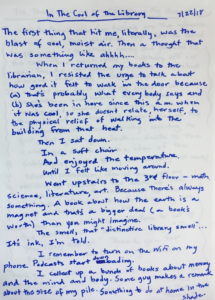 In The Cool of the Library 7/22/18
The first thing that hit me, literally, was the
blast of cool, moist air. Then a thought that
was something like ahhhh...
When I returned my books to the
librarian, I resisted the urge to talk about
how good it felt to walk in the door because
(a) that's probably what everybody says and
(b) she's been in here since this a.m. when
it was cool, so she doesn't relate herself, to
the physical relief of walking into the
building from that heat.
Then I sat down.
In a soft chair
And enjoyed the temperature
Until I felt like moving around.
Went upstairs to the 3rd floor - math,
science, literature, art. Because there's always
something. A book about how the earth is a
magnet and that's a bigger deal (a book's
worth) than you might imagine.
The smells, that "distinctive library smell"...
It's ink, I'm told.
I remember to turn on the Wifi on my
phone. Podcasts start loading.
I collect up a bunch of books about memory
and the mind and body. Some guy makes a remark
about the size of my pile. Something to do at home in the
shade